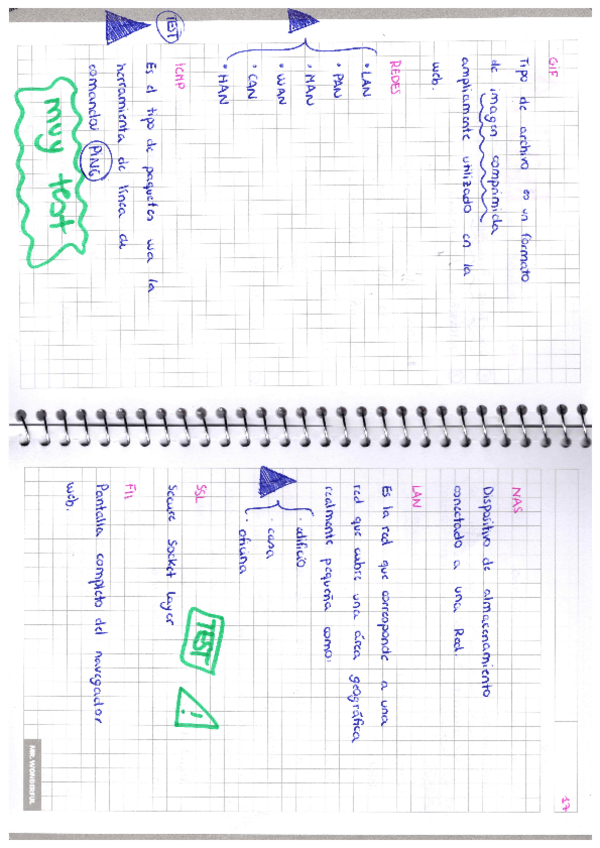 GIF
Tipo de archivo es un formato
de imagen comprimida
ampliamente utilizado en la
web.
REDES
• LAN
• PAN
• MAN
• WAN
• CAN
• HAN
TEST
ICMP
Es el tipo de paquetes usa la
herramienta de línea de
comandos PING
muy test
17
NAS
Dispositivo de almacenamiento
conectado a una Red.
LAN
Es la red que corresponde a una
red que cubre una área geográfica
realmente pequeña como:
· edificio
· casa
· oficina
SSL
Secure Socket Layer
TEST
!
F11
Pantalla completo del navegador
web.
MR. WONDERFUL